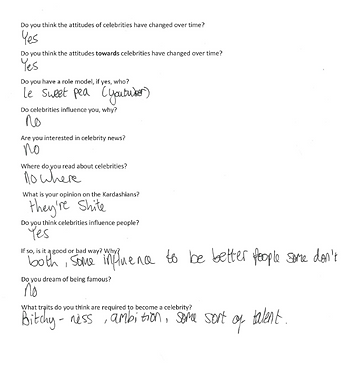 Do you think the attitudes of celebrities have changed over time?
Yes
Do you think the attitudes towards celebrities have changed over time?
Yes
Do you have a role model, if yes, who?
le sweet pea (youtuber)
Do celebrities influence you, why?
No
Are you interested in celebrity news?
No
Where do you read about celebrities?
No where
What is your opinion on the Kardashians?
they're Shite
Do you think celebrities influence people?
Yes
If so, is it a good or bad way? Why?
both, some influence to be better people some don't
Do you dream of being famous?
No
What traits do you think are required to become a celebrity?
Bitchy-ness, ambition, some sort of talent.